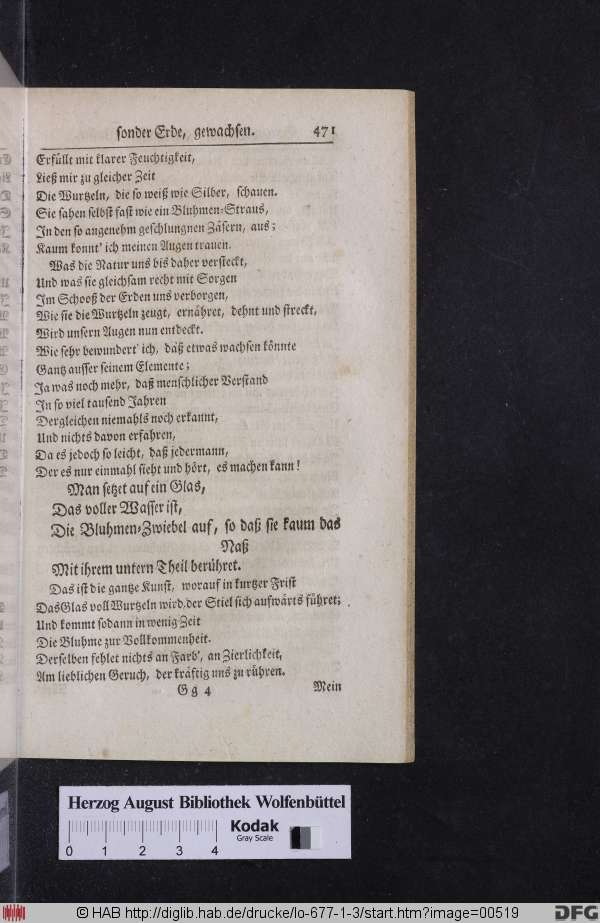 sonder Erde, gewachsen. 471
Erfüllt mit klarer Feuchtigkeit,
Ließ mir zu gleicher Zeit
Die Wurtzeln, die so weiß wie Silber, schauen.
Sie sahen selbst fast wie ein Bluhmen-Straus,
In den so angenehm geschlungnen Zäsern, aus;
Kaum konnt' ich meinen Augen trauen.
Was die Natur uns bis daher versteckt,
Und was sie gleichsam recht mit Sorgen
Im Schooß der Erden uns verborgen,
Wie sie die Wurtzeln zeugt, ernähret, dehnt und streckt,
Wird unsern Augen nun entdeckt.
Wie sehr bewundert' ich, daß etwas wachsen könnte
Gantz ausser seinem Elemente;
Ja was noch mehr, daß menschlicher Verstand
In so viel tausend Jahren
Dergleichen niemahls noch erkannt,
Und nichts davon erfahren,
Da es jedoch so leicht, daß jedermann,
Der es nur einmahl sieht und hört, es machen kann!
Man setzet auf ein Glas,
Das voller Wasser ist,
Die Bluhmen-Zwiebel auf, so daß sie kaum das
Naß
Mit ihrem untern Theil berühret.
Das ist die gantze Kunst, worauf in kurtzer Frist
Das Glas voll Wurtzeln wird, der Stiel sich aufwärts führet;
Und kommt sodann in wenig Zeit
Die Bluhme zur Vollkommenheit.
Derselben fehlet nichts an Farb', an Zierlichkeit,
Am lieblichen Geruch, der kräftig uns zu rühren.
G g 4 Mein
Herzog August Bibliothek Wolfenbüttel
Kodak
Gray Scale
0 1 2 3 4
© HAB http://diglib.hab.de/drucke/lo-677-1-3/start.htm?image=00519
DFG